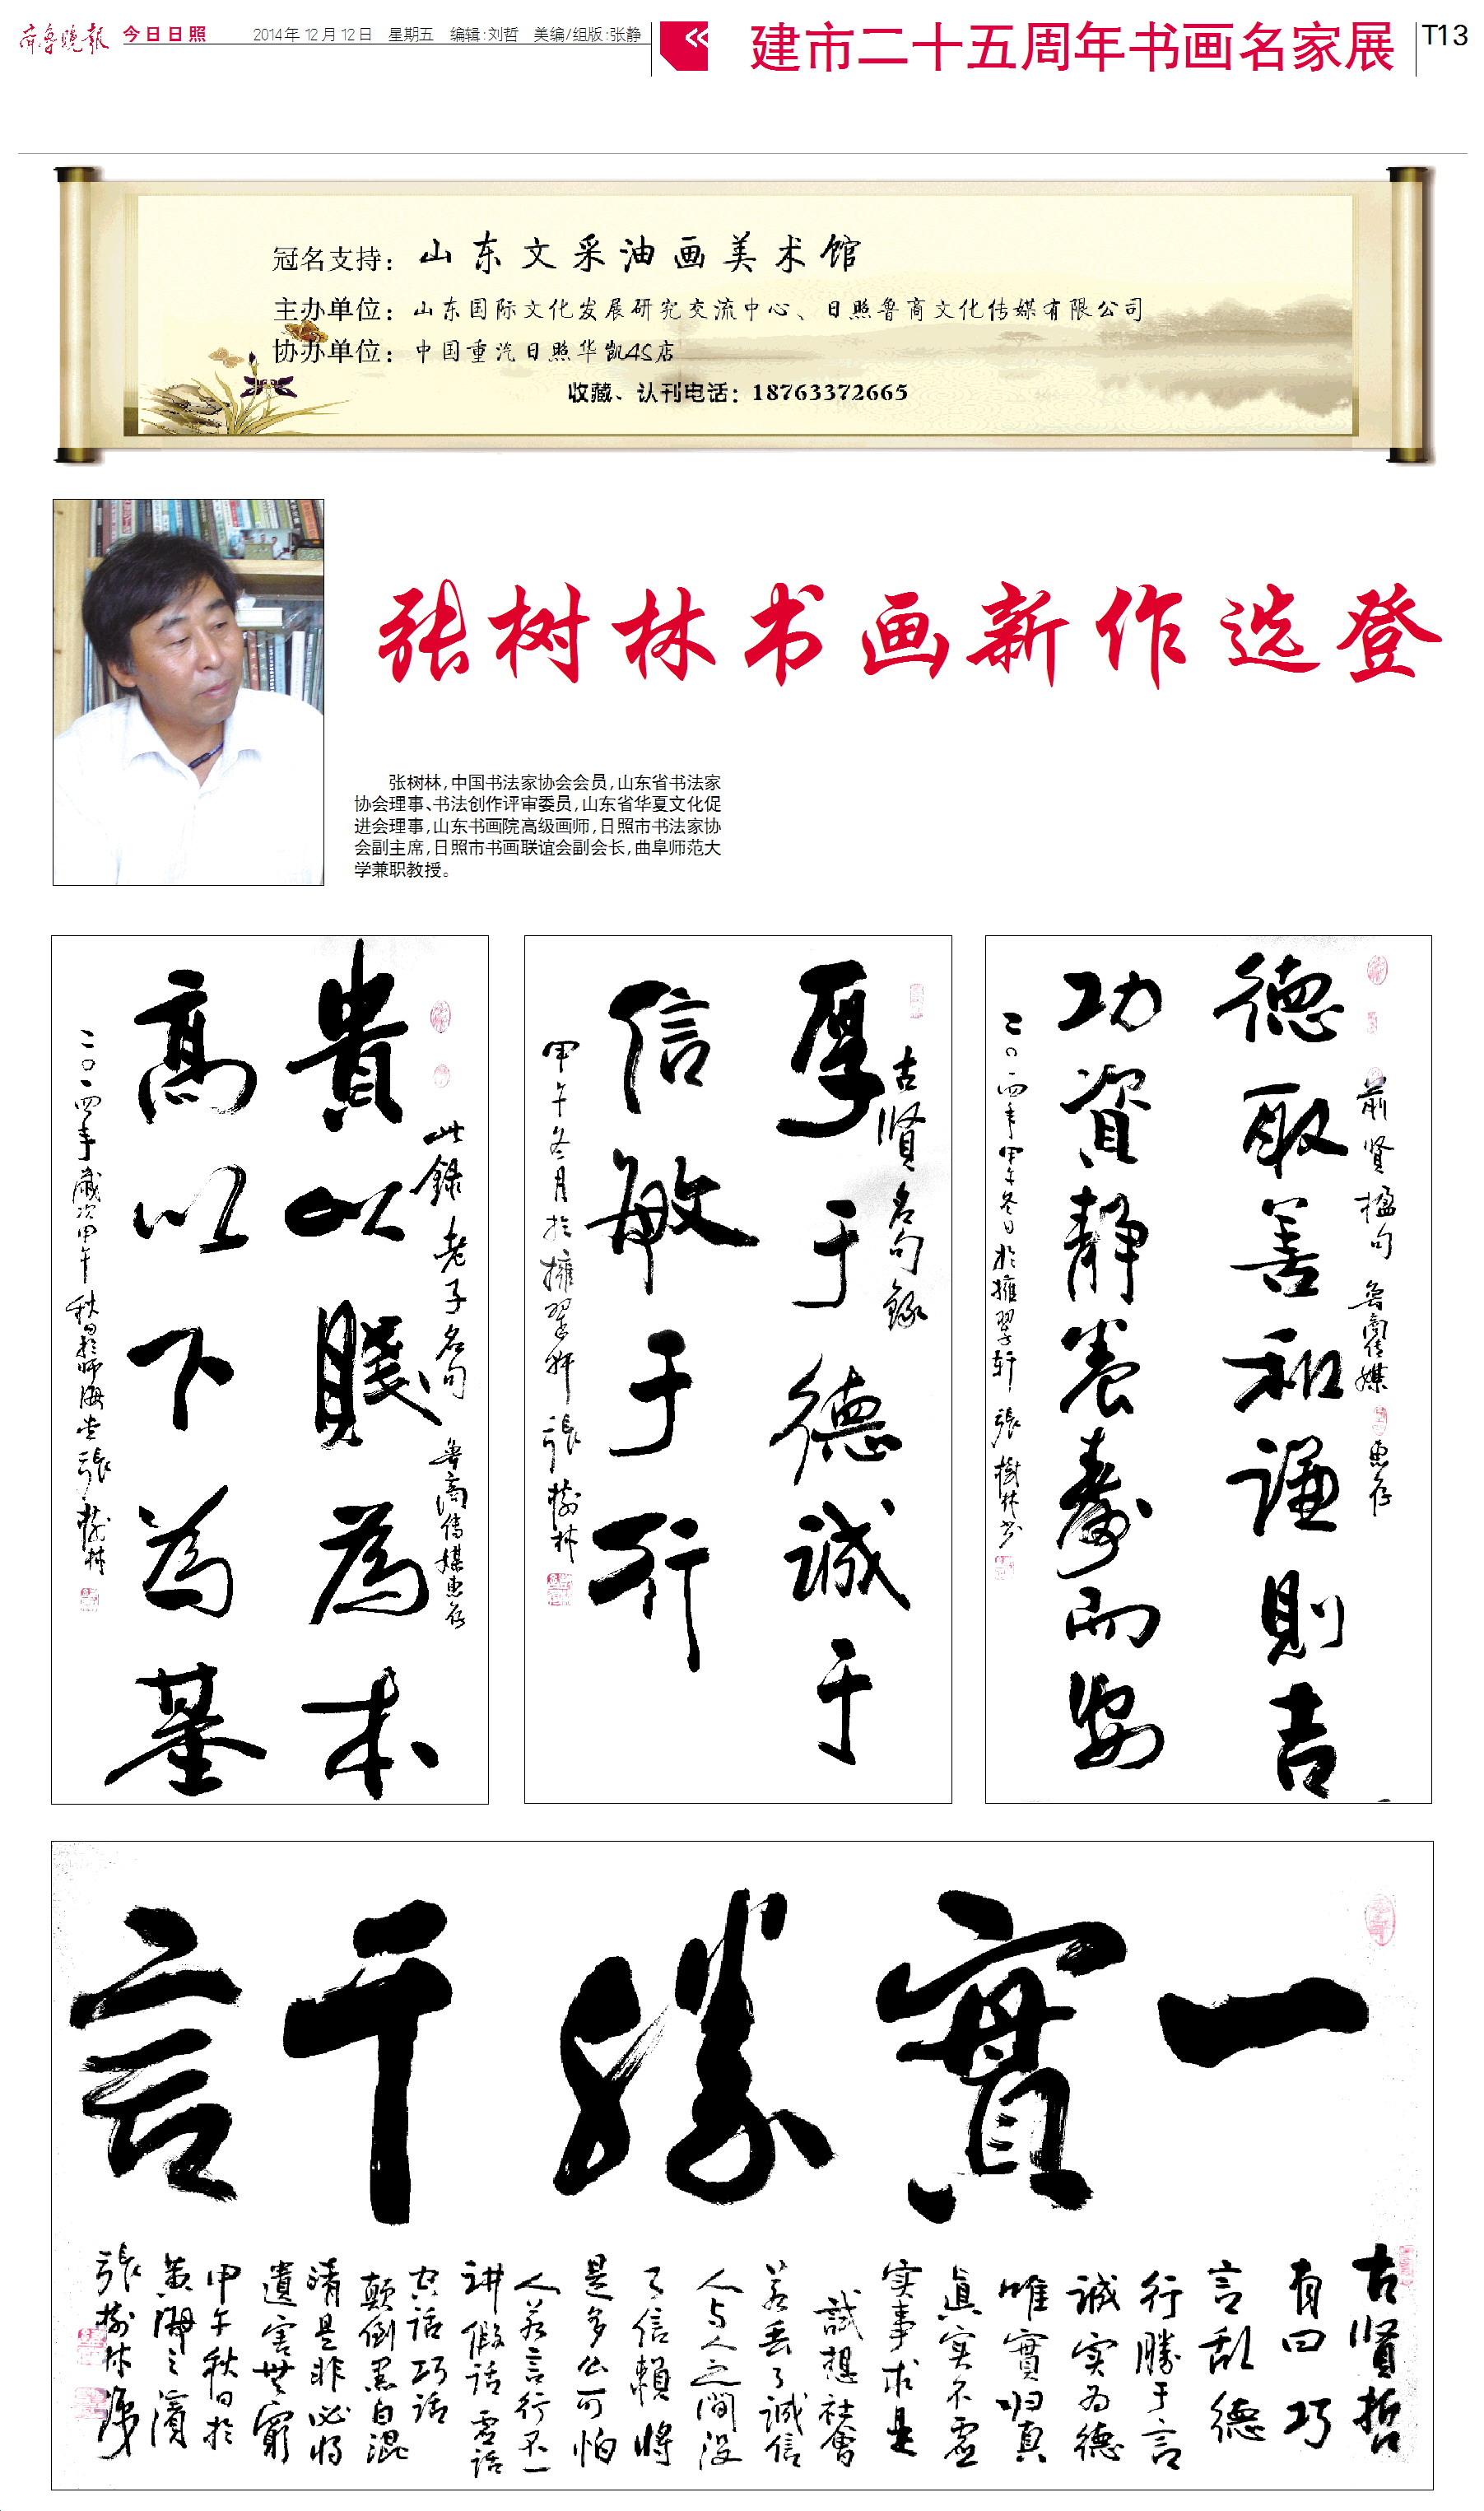 齐鲁晚报 今日日照 2014年12月12日 星期五 编辑:刘哲 美编/组版:张静
建市二十五周年书画名家展
T13
冠名支持：山东文采油画美术馆
主办单位：山东国际文化发展研究交流中心、日照鲁商文化传媒有限公司
协办单位：中国重汽日照华凯4S店
收藏、认刊电话：18763372665
张树林书画新作选登
张树林,中国书法家协会会员,山东省书法家
协会理事、书法创作评审委员,山东省华夏文化促
进会理事,山东书画院高级画师,日照市书法家协
会副主席,日照市书画联谊会副会长,曲阜师范大
学兼职教授。
此錄老子名句 魯商傳媒惠存
貴以賤為本
高以下為基
二〇一四年歲次甲午秋日於師海堂張樹林
古賢名句錄
厚于德誠于
信敏于行
甲午冬月於擁翠軒張樹林
前賢楹句 魯商传媒惠存
德取善和谦則吉
功資靜養壽而安
二〇一四年甲午冬日於擁翠軒張樹林书
一實勝千言
古賢哲
有曰巧
言乱德
行勝于言
诚实为德
唯實归真
真实不虚
实事求是
試想社會
若丢了诚信
人与人之間没
了信賴將
是多么可怕
人若言行不一
讲假话虚话
空话巧话
颠倒黑白混
淆是非必将
遺害無窮
甲午秋日於
黄海之濱
張樹林